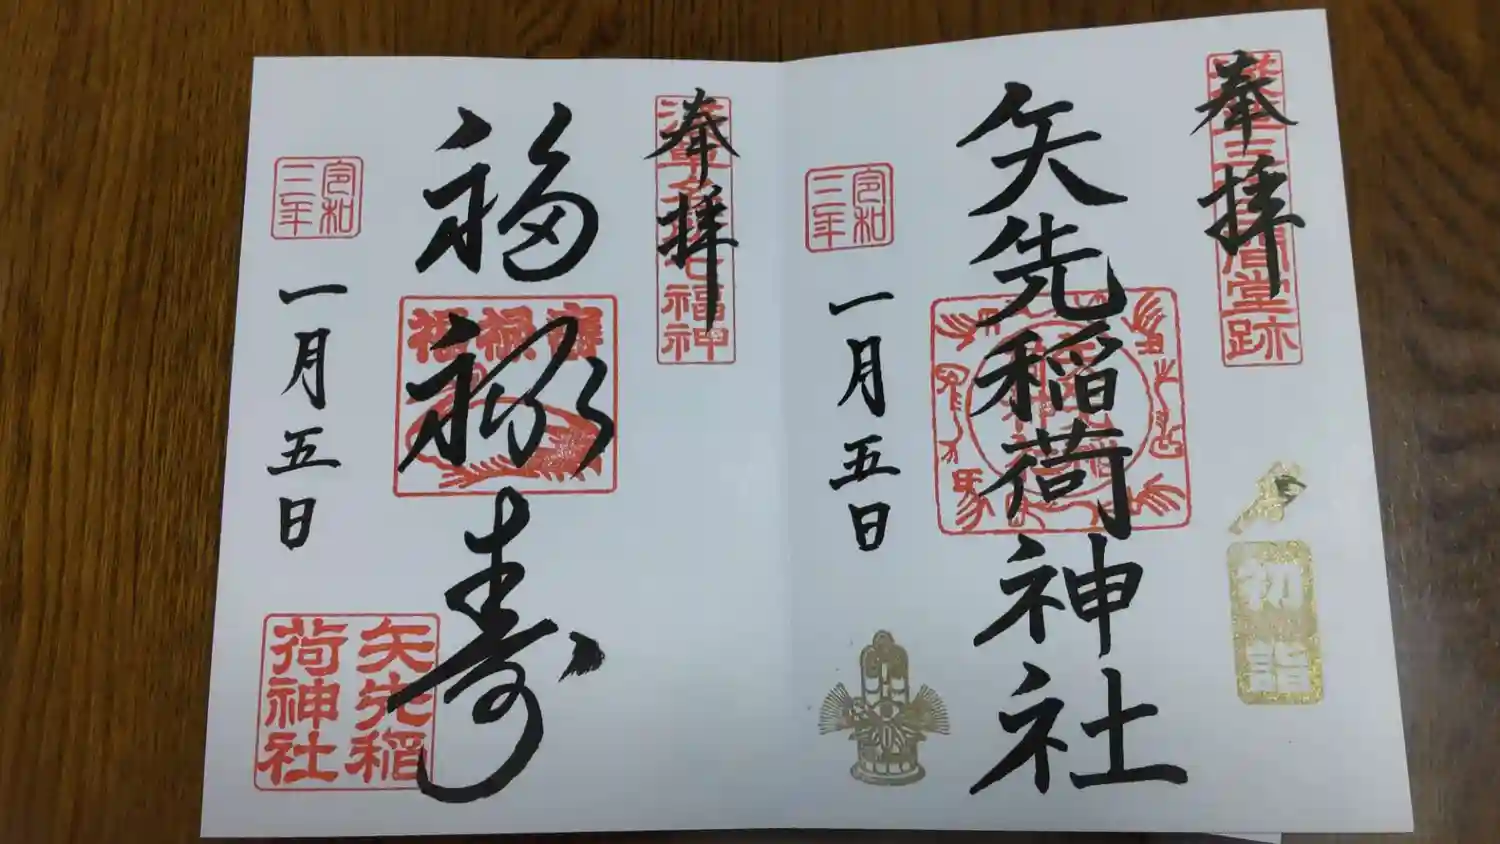 奉拝
浅草三十三間堂跡
矢先稲荷神社
初詣
令和
三年
一月五日
奉拝
浅草名所七福神
福禄寿
福禄寿
令和
三年
一月五日
矢先稲
荷神社